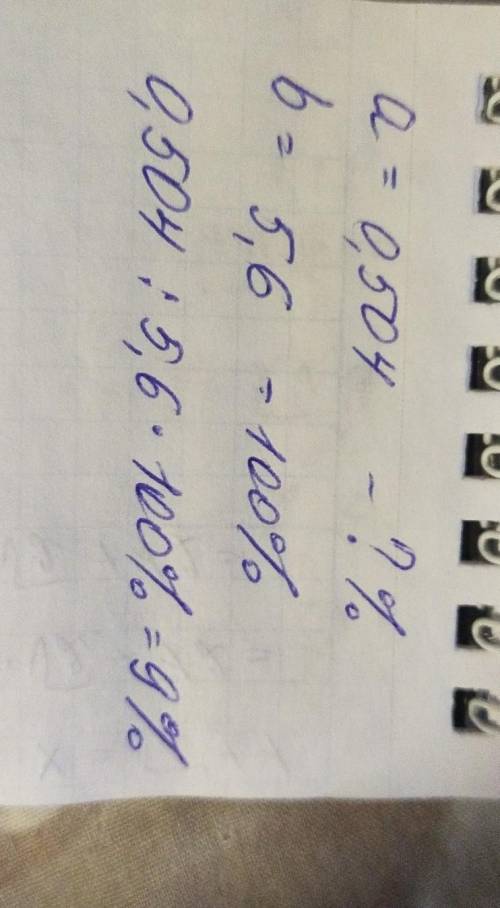 a = 0,504 - ? %
b = 5,6 - 100%
0,504 : 5,6 · 100% = 9%